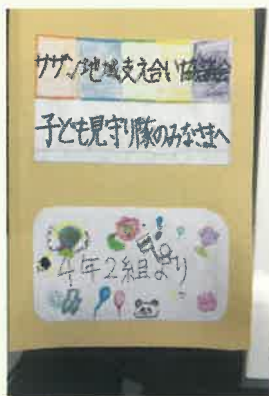 サザン地域支え合い協議会
子ども見守り隊のみなさまへ
4年2組より